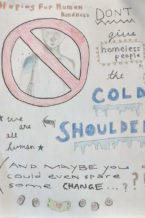 Hoping For Human
Kindness
DON'T
give
homeless
people
the
COLD
SHOULDER
we
are
all
human
AND MAYBE YOU
could even spare
some CHANGE...??